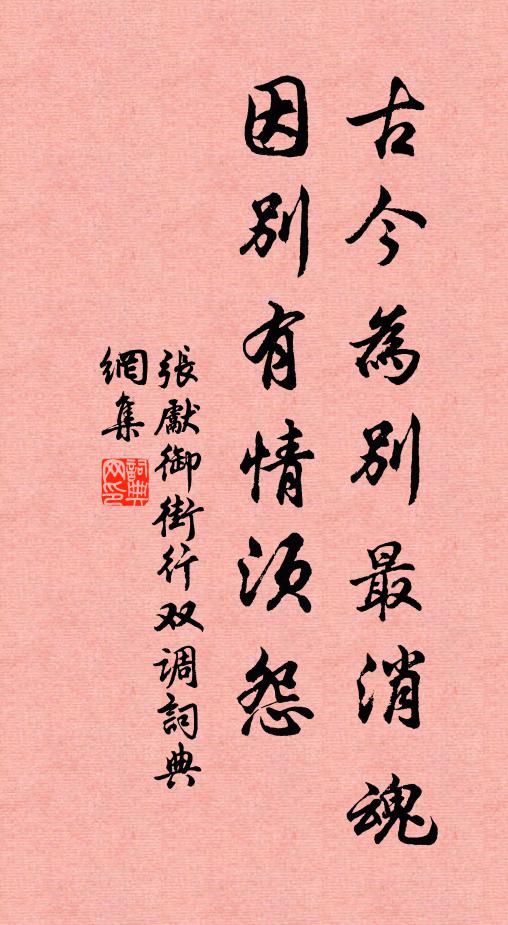 古今為別最消魂
因別有情須怨
張獻御街行双调詞典
網集
詞典
网印